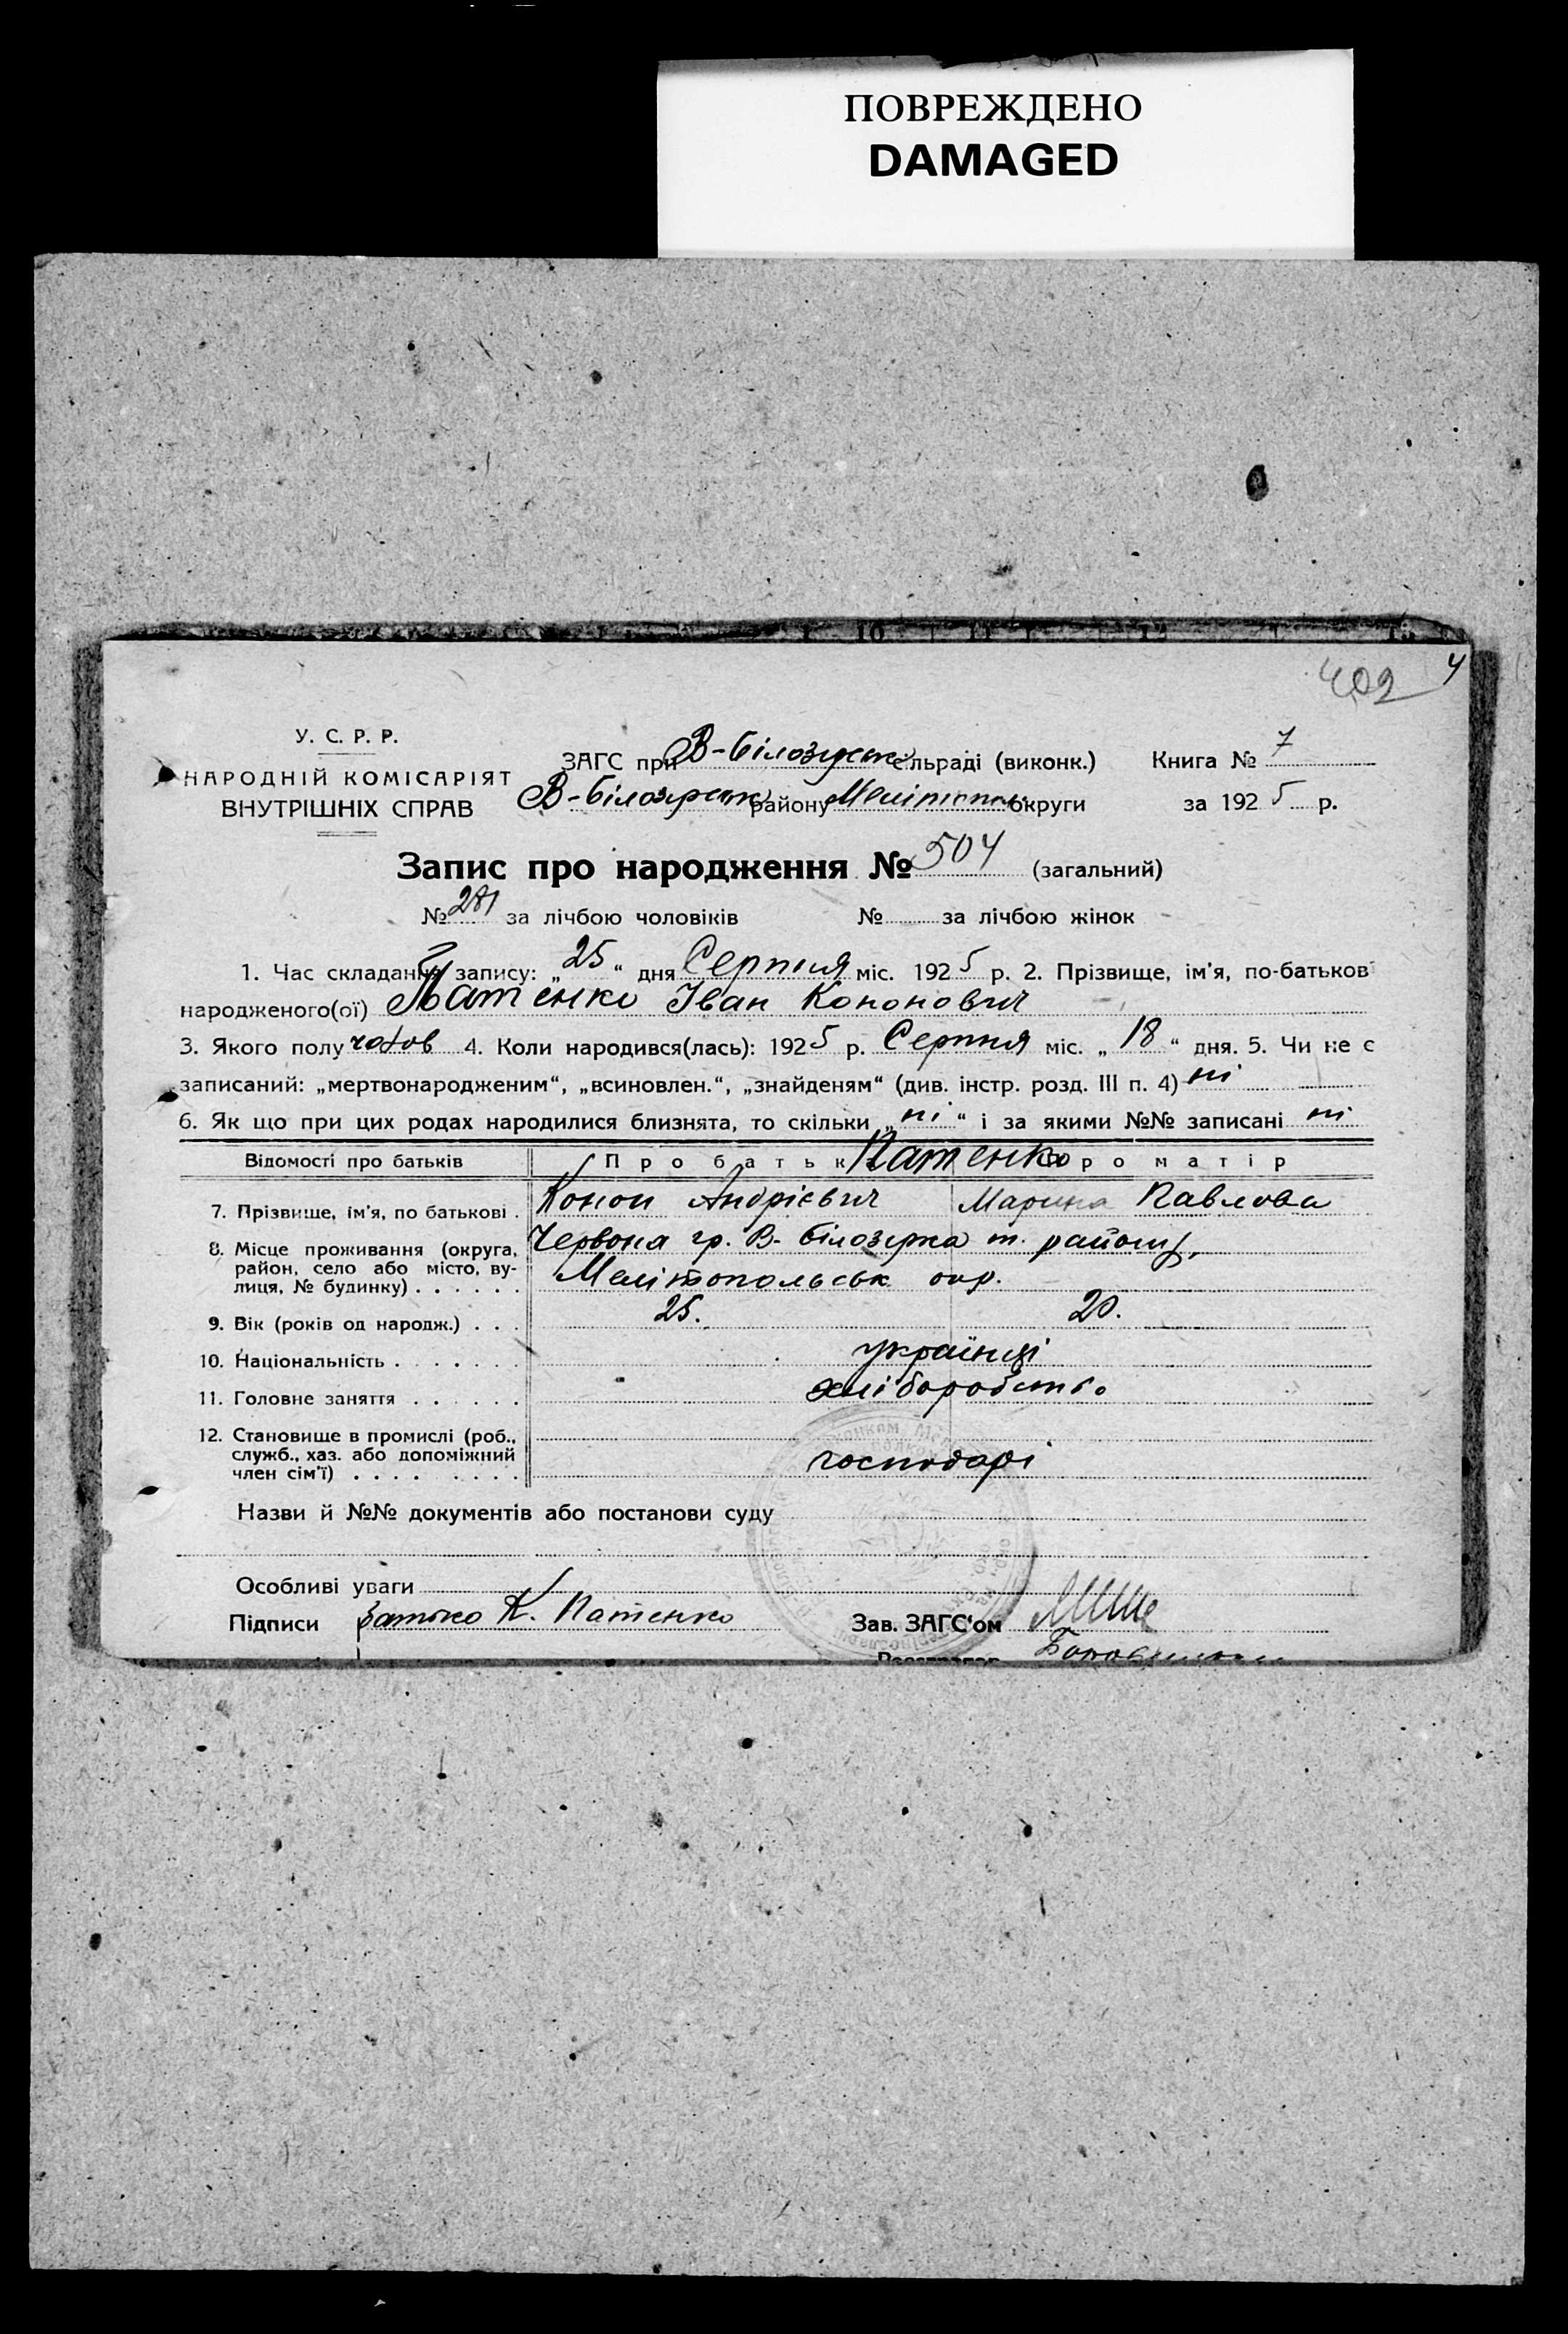 ПОВРЕЖДЕНО
DAMAGED
402
4
У. С. Р. Р.
НАРОДНІЙ КОМІСАРІЯТ
ВНУТРІШНІХ СПРАВ
ЗАГС при В-Білозерськ сельраді (виконк.) Книга № 7
В-Білозерськ району Мелітоп округи за 1925 р.
Запис про народження № 504 (загальний)
№ 281 за лічбою чоловіків № за лічбою жінок
1. Час складання запису: „25“ дня Серпня міс. 1925 р. 2. Прізвище, ім'я, по-батькові
народженого(ої) Патенко Іван Кононович
3. Якого полу чолов 4. Коли народився(лась): 1925 р. Серпня міс. „18“ дня. 5. Чи не є
записаний: „мертвонародженим“, „всиновлен.“, „знайденям“ (див. інстр. розд. III п. 4) ні
6. Як що при цих родах народилися близнята, то скільки „ні“ і за якими №№ записані ні
Відомості про батьків Про батьк Патенко Про матір
7. Прізвище, ім'я, по батькові . Конон Андрієвич Марина Павлова
8. Місце проживання (округа, район, село або місто, вулиця, № будинку) . . . . . . Червона гр. В-Білозірка т. району,
Мелітопольськ окр.
9. Вік (років од народж.) . . . 25. 20.
10. Національність . . . . . . . українці
11. Головне заняття . . . . . . хліборобство
12. Становище в промислі (роб.,
служб., хаз. або допоміжний
член сім'ї) . . . . . . . . господарі
Назви й №№ документів або постанови суду
Особливі уваги
Підписи батько К. Патенко Зав. ЗАГС'ом